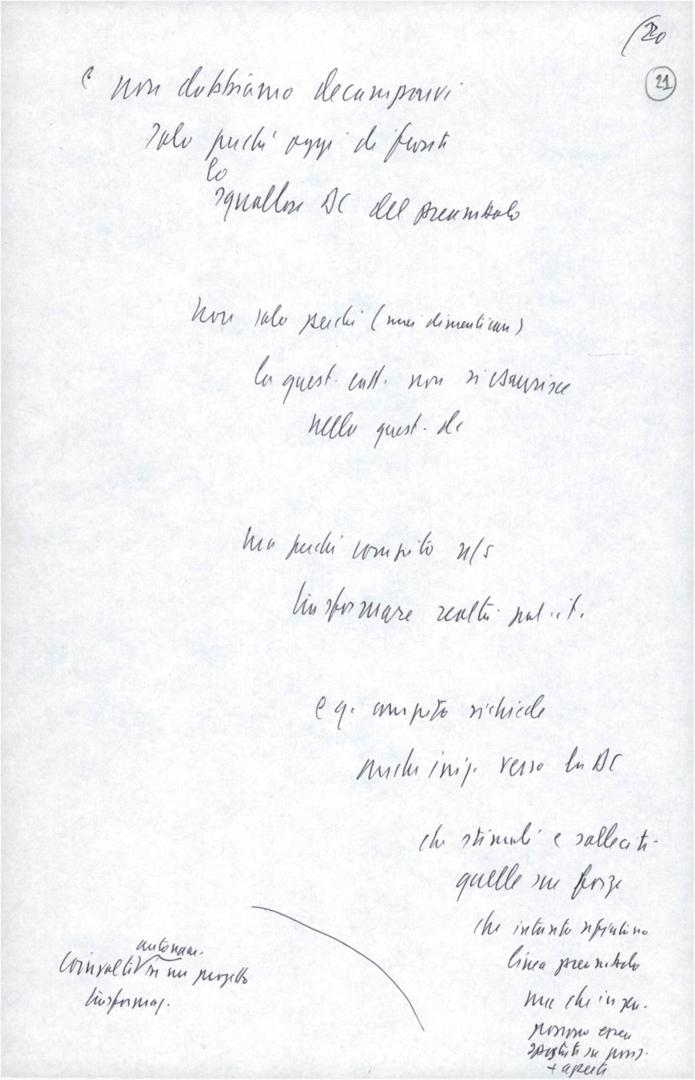 20
21
e non dobbiamo decamparvi
solo perché oggi di fronte
lo
squallore DC del preambolo
non solo perché (mai dimenticare)
la quest. catt. non si esaurisce
nella quest. dc
ma perché compito n/s
trasformare realtà pol. it.
e q. compito richiede
anche iniz. verso la DC
che stimoli e solleciti
quelle sue forze
che intanto rifiutino
linea preambolo
ma che in gen.
possono essere
spostate su posiz.
+ aperte
autonom.
coinvolti in un progetto
trasformaz.